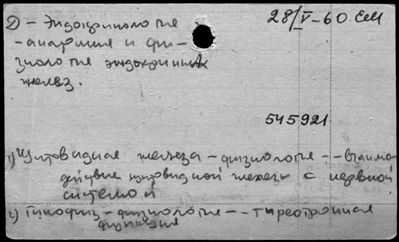 28/V-60 ЕМ
Д - Эндокринология
- анатомия и фи-
зиология эндокринных
желез.
545921
1) Щитовидная железа - физиология - - взаимо-
действие щитовидной железы с нервной
системой
2) Гипофиз - физиология - - тиреотропная
функция